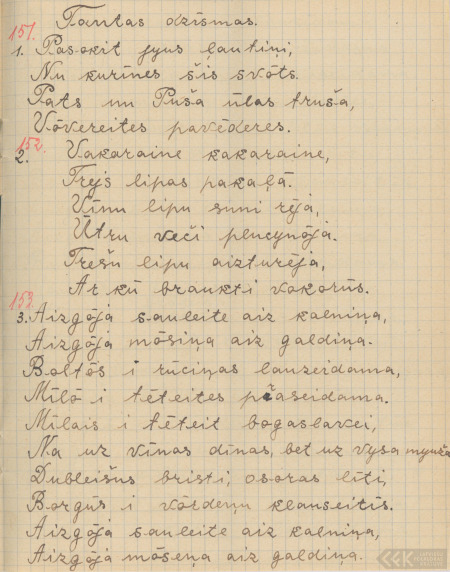 Tautas dzīsmas.
151.
1. Pasokit jyus ļautiņi,
Nu kurines šis svōts.
Pats nu Puša ūlas truša,
Vōvereites pavēderes.
152.
2. Vakaraine kakaraine,
Trejs lipas pakaļā.
Vīnu lipu suni rēja,
Ūtru veči plucynōja.
Trešu lipu aizturēja,
Ar kū braukti vokorūs.
153.
3. Aizgōja sauleite aiz kalniņa,
Aizgōja mōsiņa aiz galdiņa.
Boltōs i rūciņas lauzeidama,
Mīlō i tēteites praseidama.
Mīlais i tēteit bogaslavei,
Na uz vīnas dīnas, bet uz vysa myuža
Dubleišus bristi, osoras līti,
Borgūs i vōrdeņu klauseitīs.
Aizgōja sauleite aiz kalniņa,
Aizgōja mōseņa aiz galdiņa.